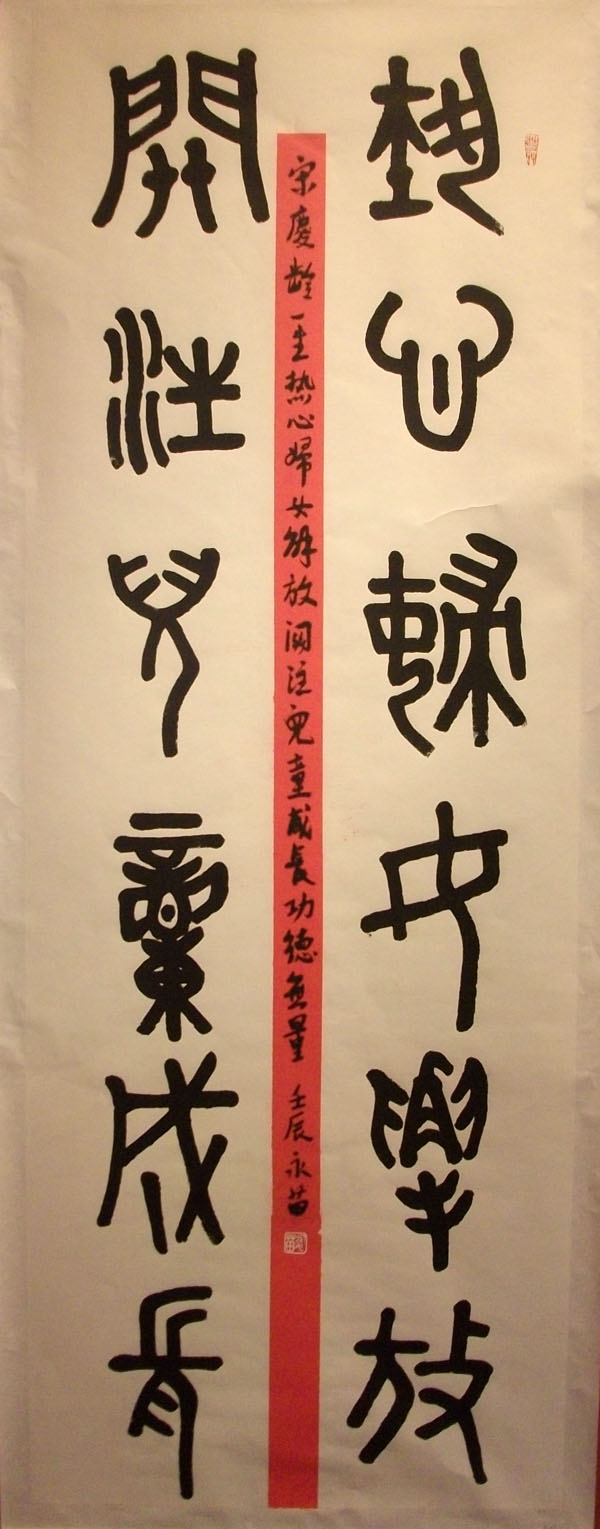 埶心婦女解放
開注兒童成長
宋慶齡一生热心婦女解放関注兒童成長功德無量 壬辰永苗